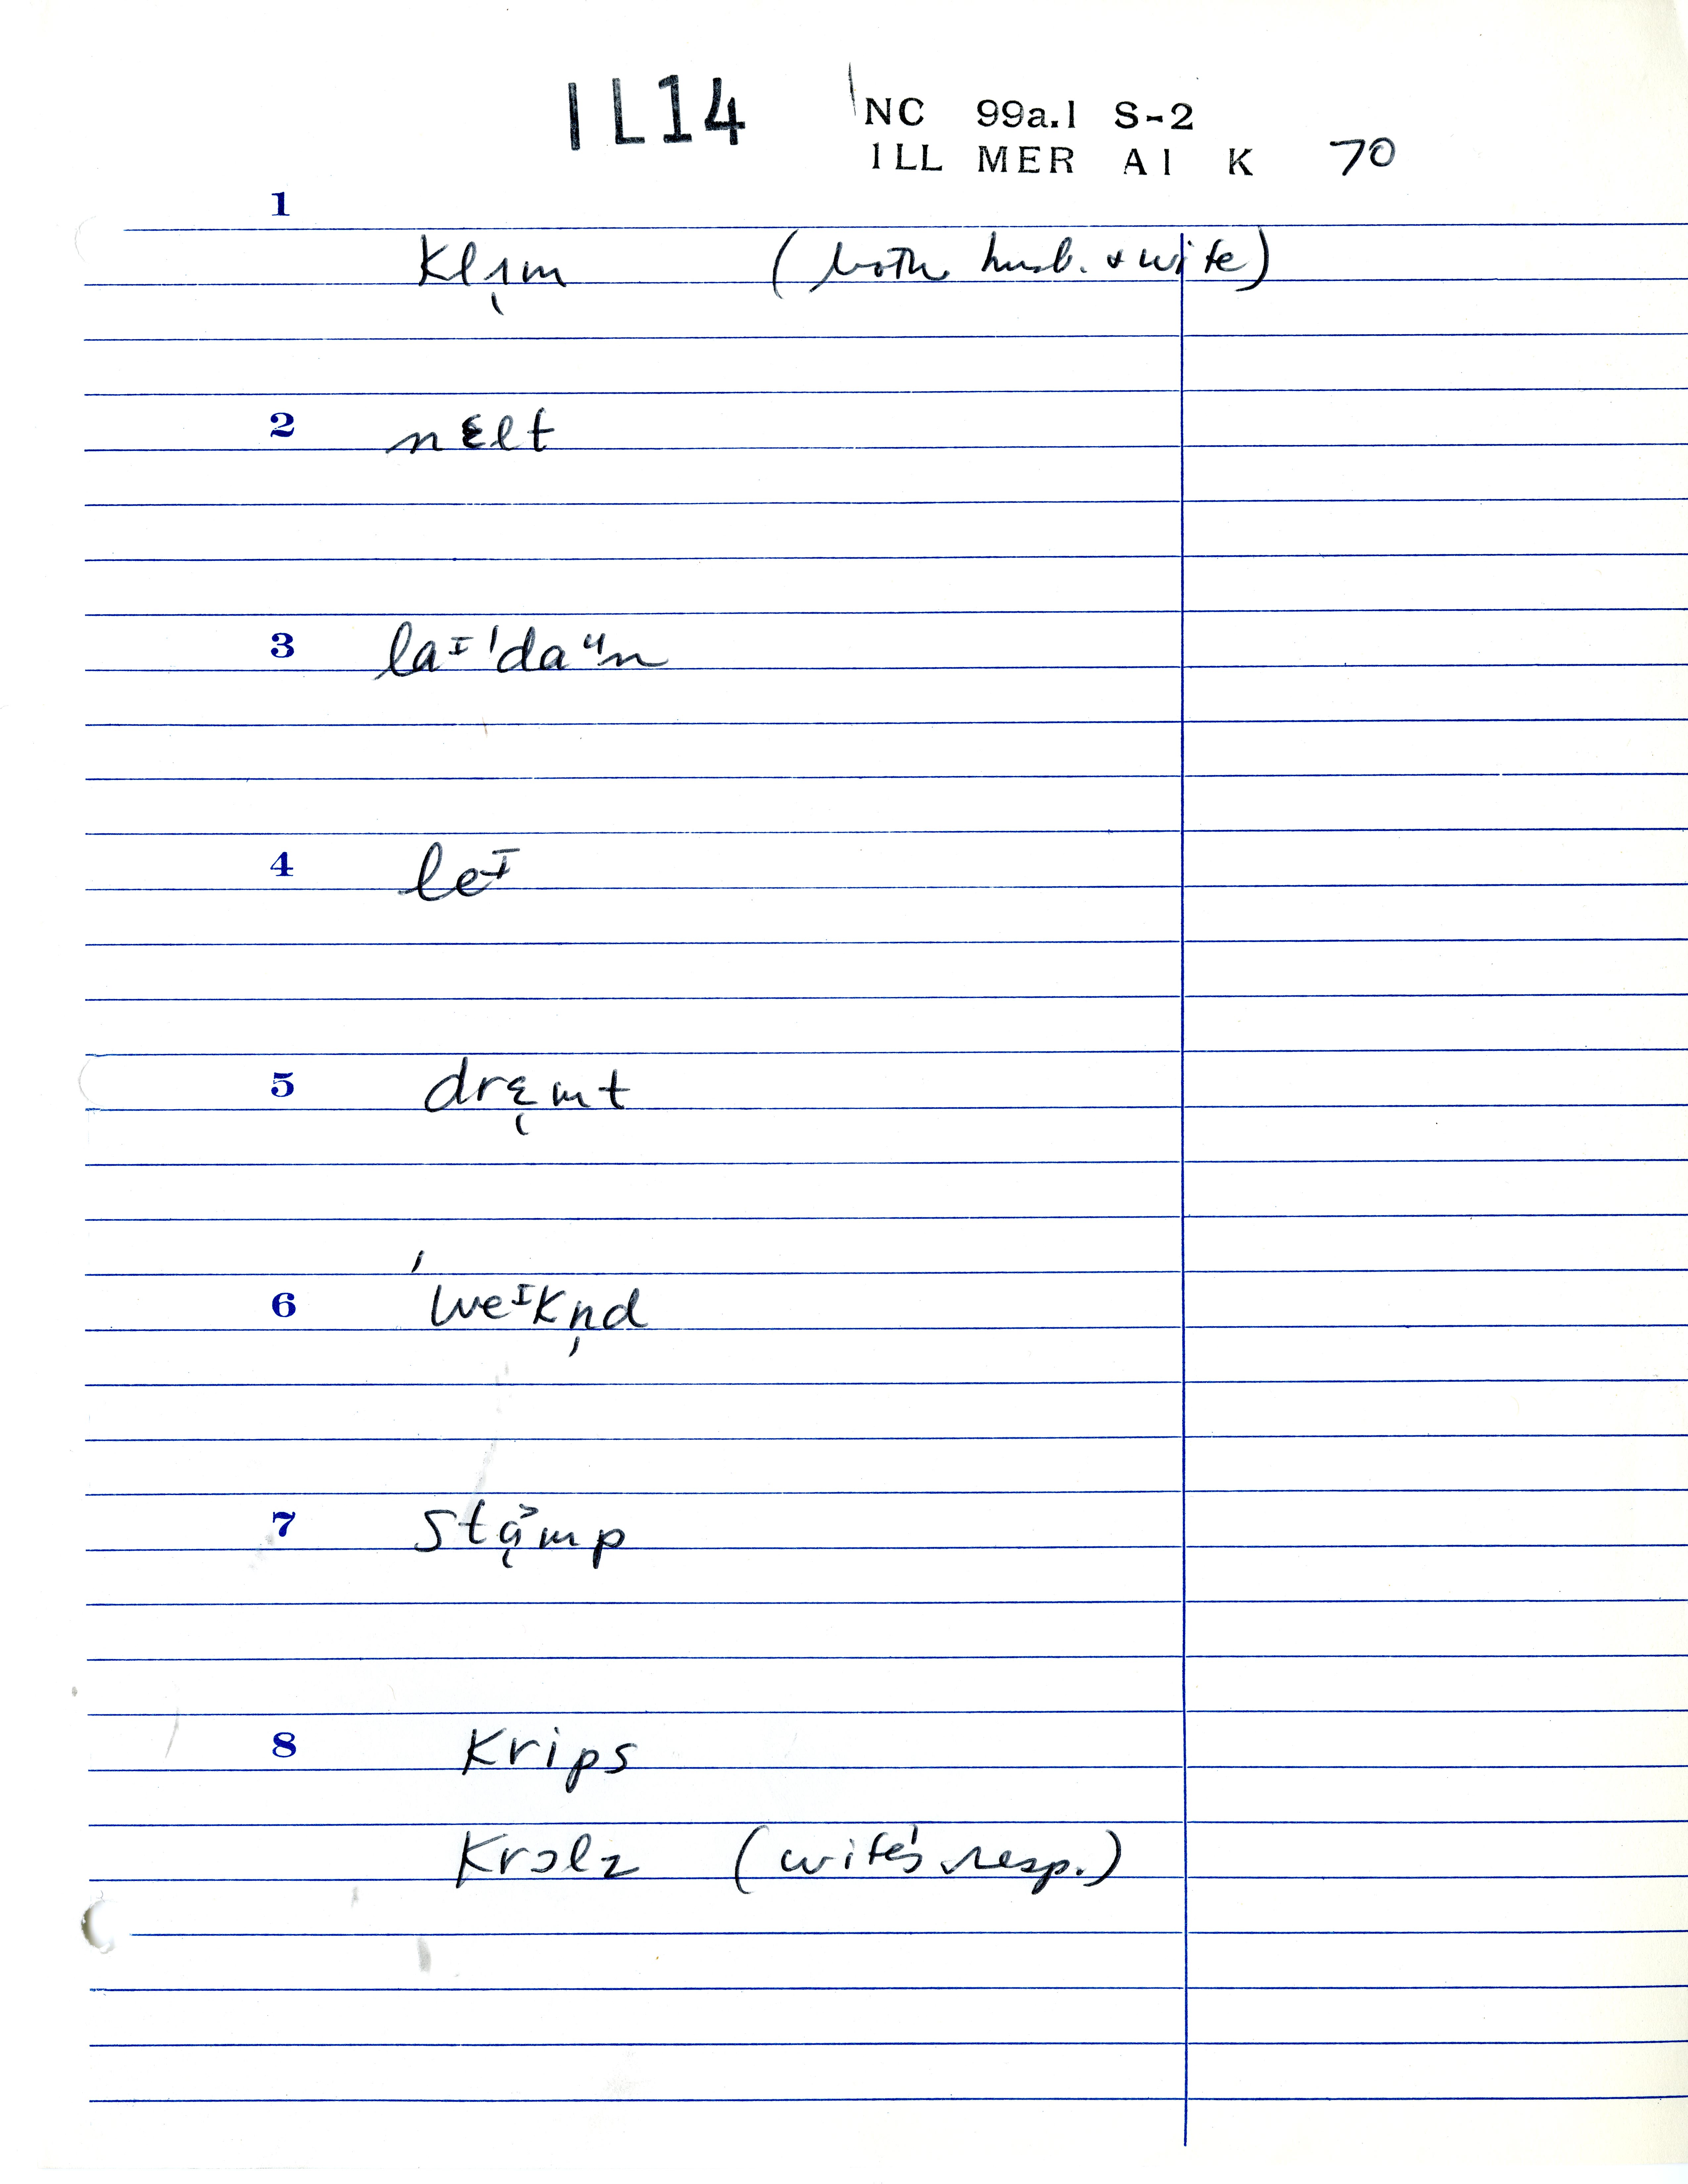 IL14 NC 99a.1 S-2
ILL MER A1 K 70
1
klɪ̨m (both husb. & wife)
2 nɛlt
3 laᶦˈdaᶸn
4 leᶦ
5 drɛ̨mt
6 ˈweᶦkn̩d
7 stą˃mp
8 krips
krɔlz (wife's resp.)